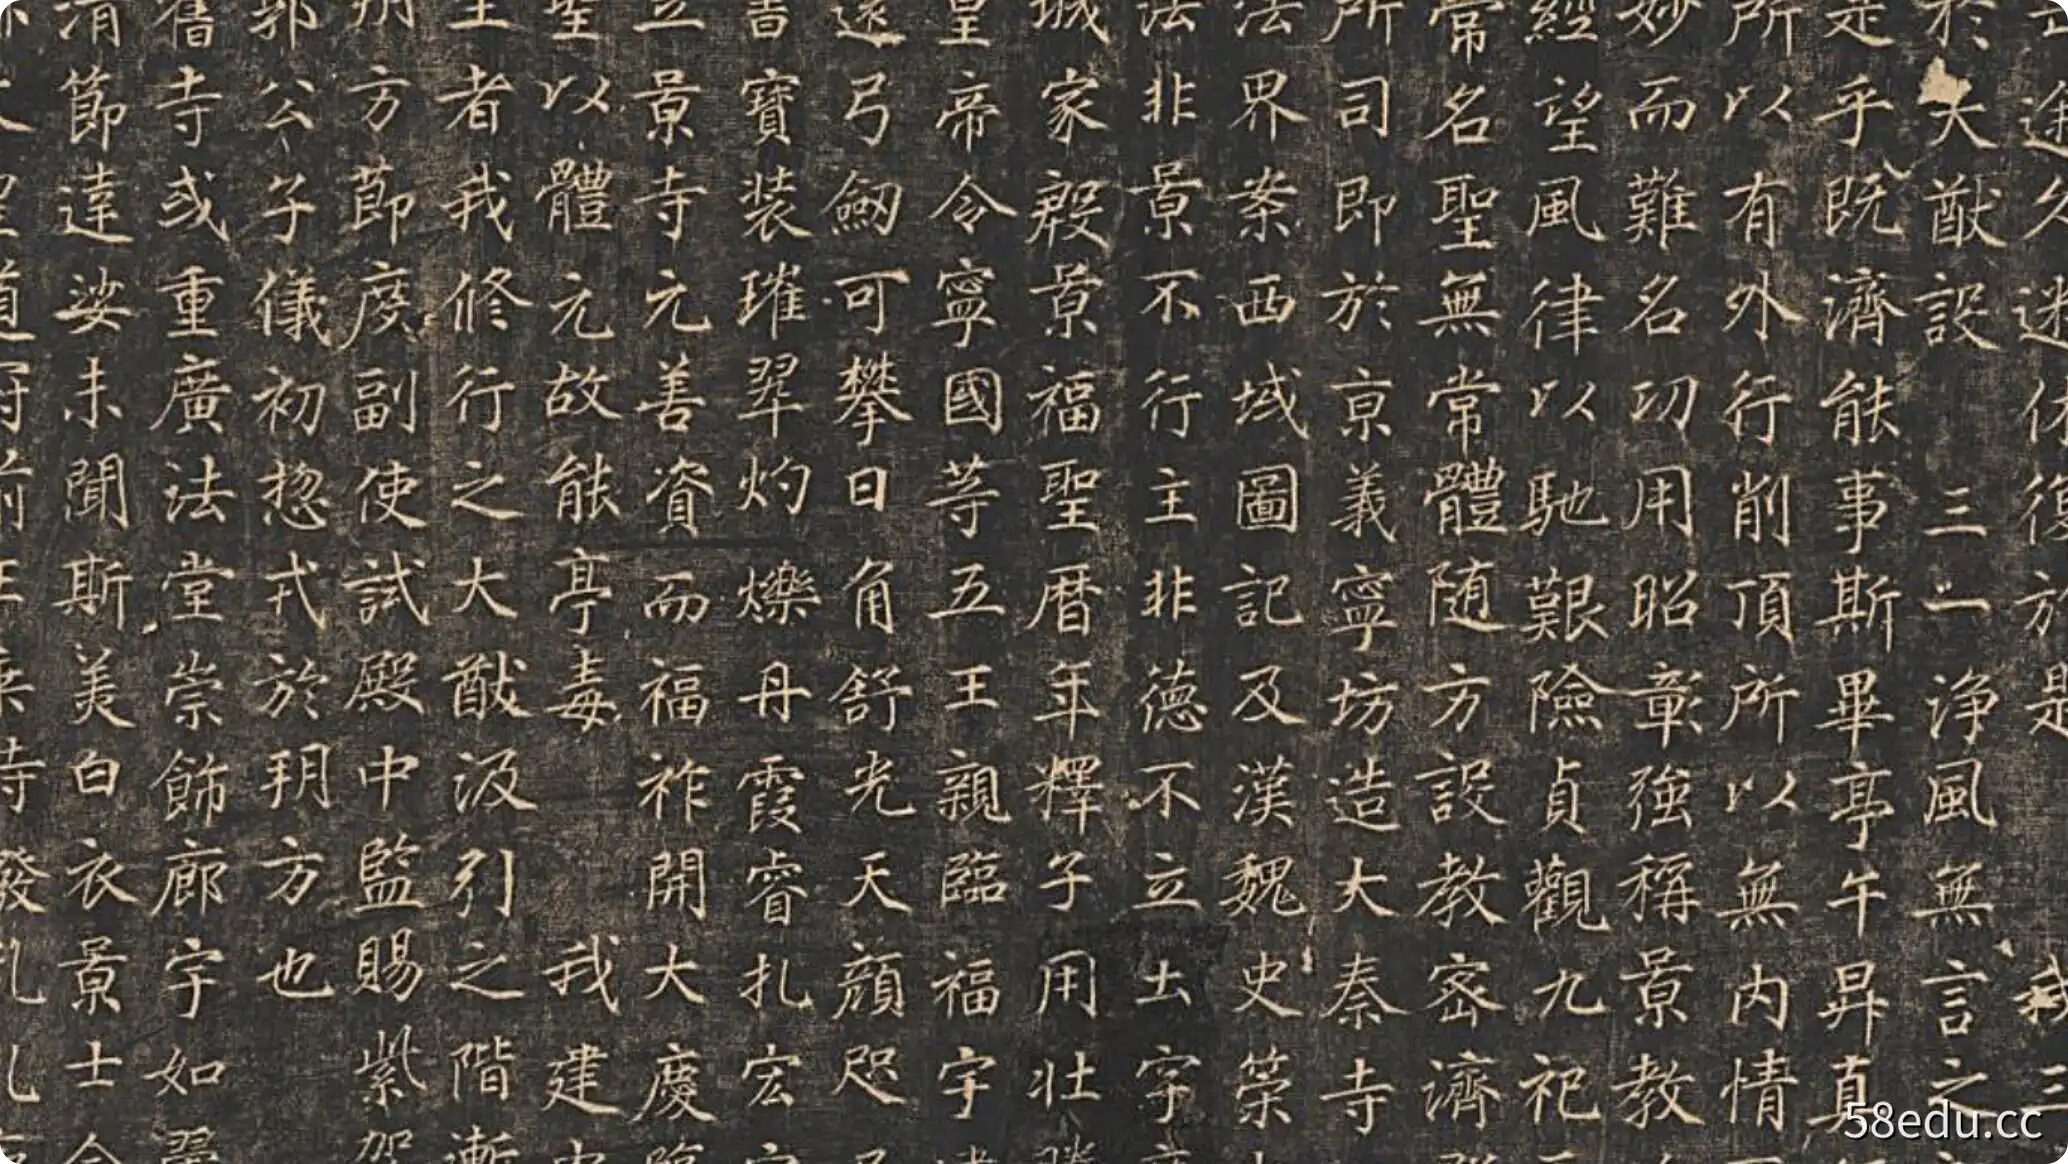 途久迷休復於是我三
於大猷設三一淨風無言之
是乎既濟能事斯畢亭午昇真
所以有外行削頂所以無内情
妙而難名功用昭彰強稱景教
經望風律以馳艱險貞觀九祀
常名聖無常體随方設教密濟
所司即於京義寧坊造大秦寺
法界案西域圖記及漢魏史策
法非景不行主非德不立土宇
城家殷景福聖曆年釋子用壯
皇帝令寧國等五王親臨福宇
遠弓劒可攀日角舒光天顔咫
書寶装璀翠灼爍丹霞睿扎宏
立景寺元善資而福祚開大慶臨
聖以體元故能亭毒我建
王者我修行之大猷汲引之階漸
朔方節度副使試殿中監賜紫
郭公子儀初惣戎於朔方也
舊寺或重廣法堂崇飾廊宇如
清節達娑未聞斯美白衣景士
58edu.cc